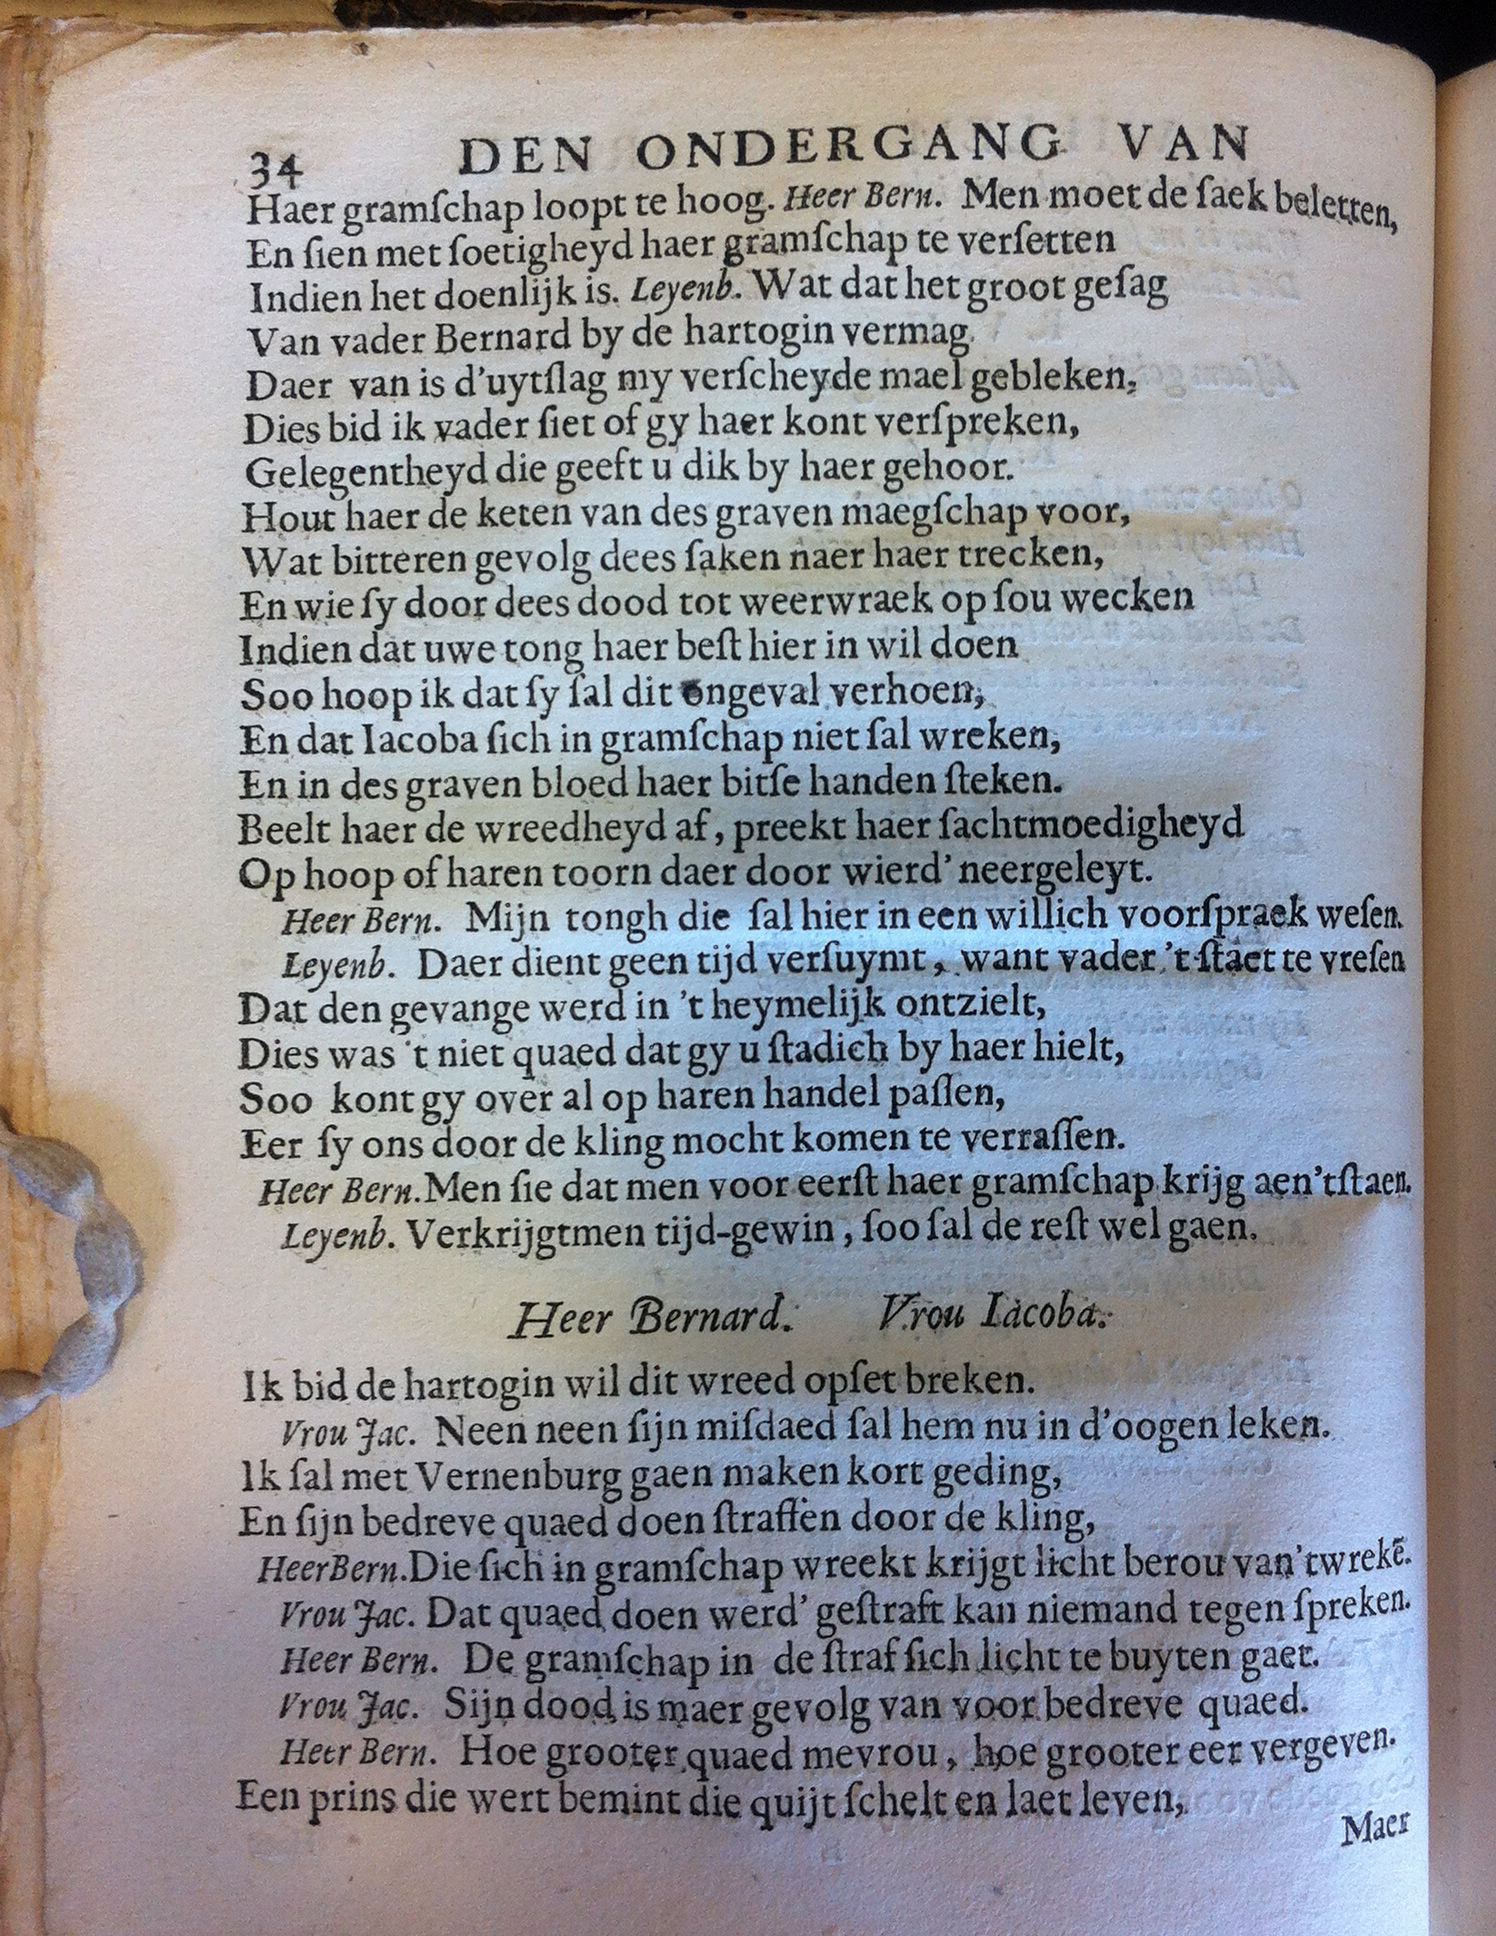 34 DEN ONDERGANG VAN
Haer gramſchap loopt te hoog. Heer Bern. Men moet de ſaek beletten,
En ſien met ſoetigheyd haer gramſchap te verſetten
Indien het doenlijk is. Leyenb. Wat dat het groot geſag
Van vader Bernard by de hartogin vermag
Daer van is d'uytſlag my verſcheyde mael gebleken,
Dies bid ik vader ſiet of gy haer kont verſpreken,
Gelegentheyd die geeft u dik by haer gehoor.
Hout haer de keten van des graven maegſchap voor,
Wat bitteren gevolg dees ſaken naer haer trecken,
En wie ſy door dees dood tot weerwraek op ſou wecken
Indien dat uwe tong haer beſt hier in wil doen
Soo hoop ik dat ſy ſal dit ongeval verhoen,
En dat Iacoba ſich in gramſchap niet ſal wreken,
En in des graven bloed haer bitſe handen ſteken.
Beelt haer de wreedheyd af, preekt haer ſachtmoedigheyd
Op hoop of haren toorn daer door wierd' neergeleyt.
Heer Bern. Mijn tongh die ſal hier in een willich voorſpraek weſen.
Leyenb. Daer dient geen tijd verſuymt, want vader 't ſtaet te vreſen
Dat den gevange werd in 't heymelijk ontzielt,
Dies was 't niet quaed dat gy u ſtadich by haer hielt,
Soo kont gy over al op haren handel paſſen,
Eer ſy ons door de kling mocht komen te verraſſen.
Heer Bern. Men ſie dat men voor eerſt haer gramſchap krijg aen'tſtaen.
Leyenb. Verkrijgtmen tijd-gewin, ſoo ſal de reſt wel gaen.
Heer Bernard. Vrou Iacoba.
Ik bid de hartogin wil dit wreed opſet breken.
Vrou Jac. Neen neen ſijn miſdaed ſal hem nu in d'oogen leken.
Ik ſal met Vernenburg gaen maken kort geding,
En ſijn bedreve quaed doen ſtraffen door de kling,
Heer Bern. Die ſich in gramſchap wreekt krijgt licht berou van'twrekē.
Vrou Jac. Dat quaed doen werd' geſtraft kan niemand tegen ſpreken.
Heer Bern. De gramſchap in de ſtraf ſich licht te buyten gaet.
Vrou Jac. Sijn dood is maer gevolg van voor bedreve quaed.
Heer Bern. Hoe grooter quaed mevrou, hoe grooter eer vergeven.
Een prins die wert bemint die quijt ſchelt en laet leven,
Maer